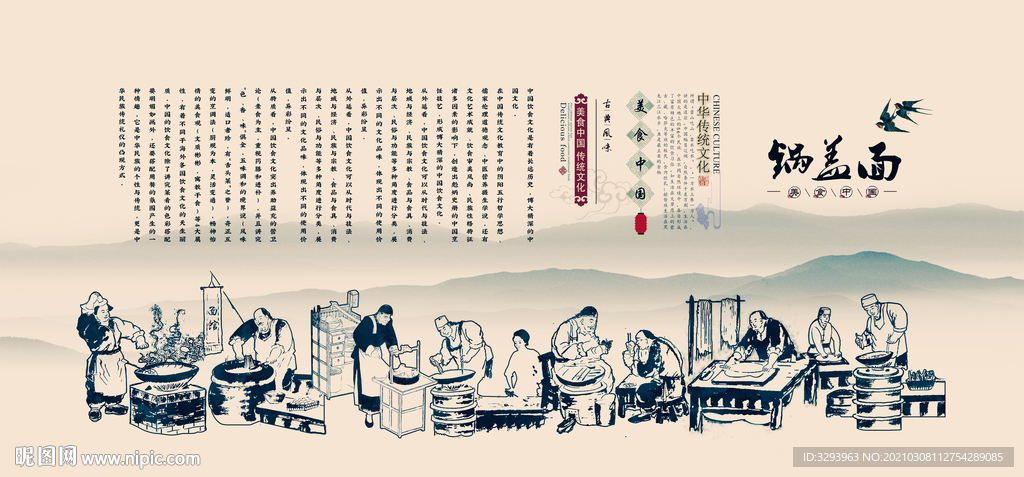 锅盖面
美食中国
CHINESE CULTURE
中华传统文化
美食中国
古典风味
美食中国 传统文化
Delicious food
中国饮食文化是有着长远历史，博大精深的中
国文化。
在中国传统文化教育中的阴阳五行哲学思想、
儒家伦理道德观念、中医营养摄生学说，还有
文化艺术成就、饮食审美风尚、民族性格特征
诸多因素的影响下，创造出彪炳史册的中国烹
饪技艺，形成博大精深的中国饮食文化。
从外延看，中国饮食文化可以从时代与技法、
地域与经济、民族与宗教、食品与食具、消费
与层次、民俗与功能等多种角度进行分类，展
示出不同的文化品味，体现出不同的使用价
值，异彩纷呈。
从外延看，中国饮食文化可以从时代与技法、
地域与经济、民族与宗教、食品与食具、消费
与层次、民俗与功能等多种角度进行分类，展
示出不同的文化品味，体现出不同的使用价
值，异彩纷呈。
从特质看，中国饮食文化突出养助益充的营卫
论（素食为主，重视药膳和进补），并且讲究
“色、香、味”俱全。五味调和的境界说（风味
鲜明，适口者珍，有“舌头菜”之誉），奇正互
变的烹调法（厨规为本，灵活变通），畅神怡
情的美食观（文质彬彬，寓教于食）等4大属
性，有着不同于海外各国饮食文化的天生丽
质。中国的饮食文化除了讲究菜肴的色彩搭配
要明媚如画外，还要搭配用餐的氛围产生的一
种情趣，它是中华民族的个性与传统，更是中
华民族传统礼仪的凸现方式。
面馆
昵图网 www.nipic.com
ID:3293963 NO:20210308112754289085